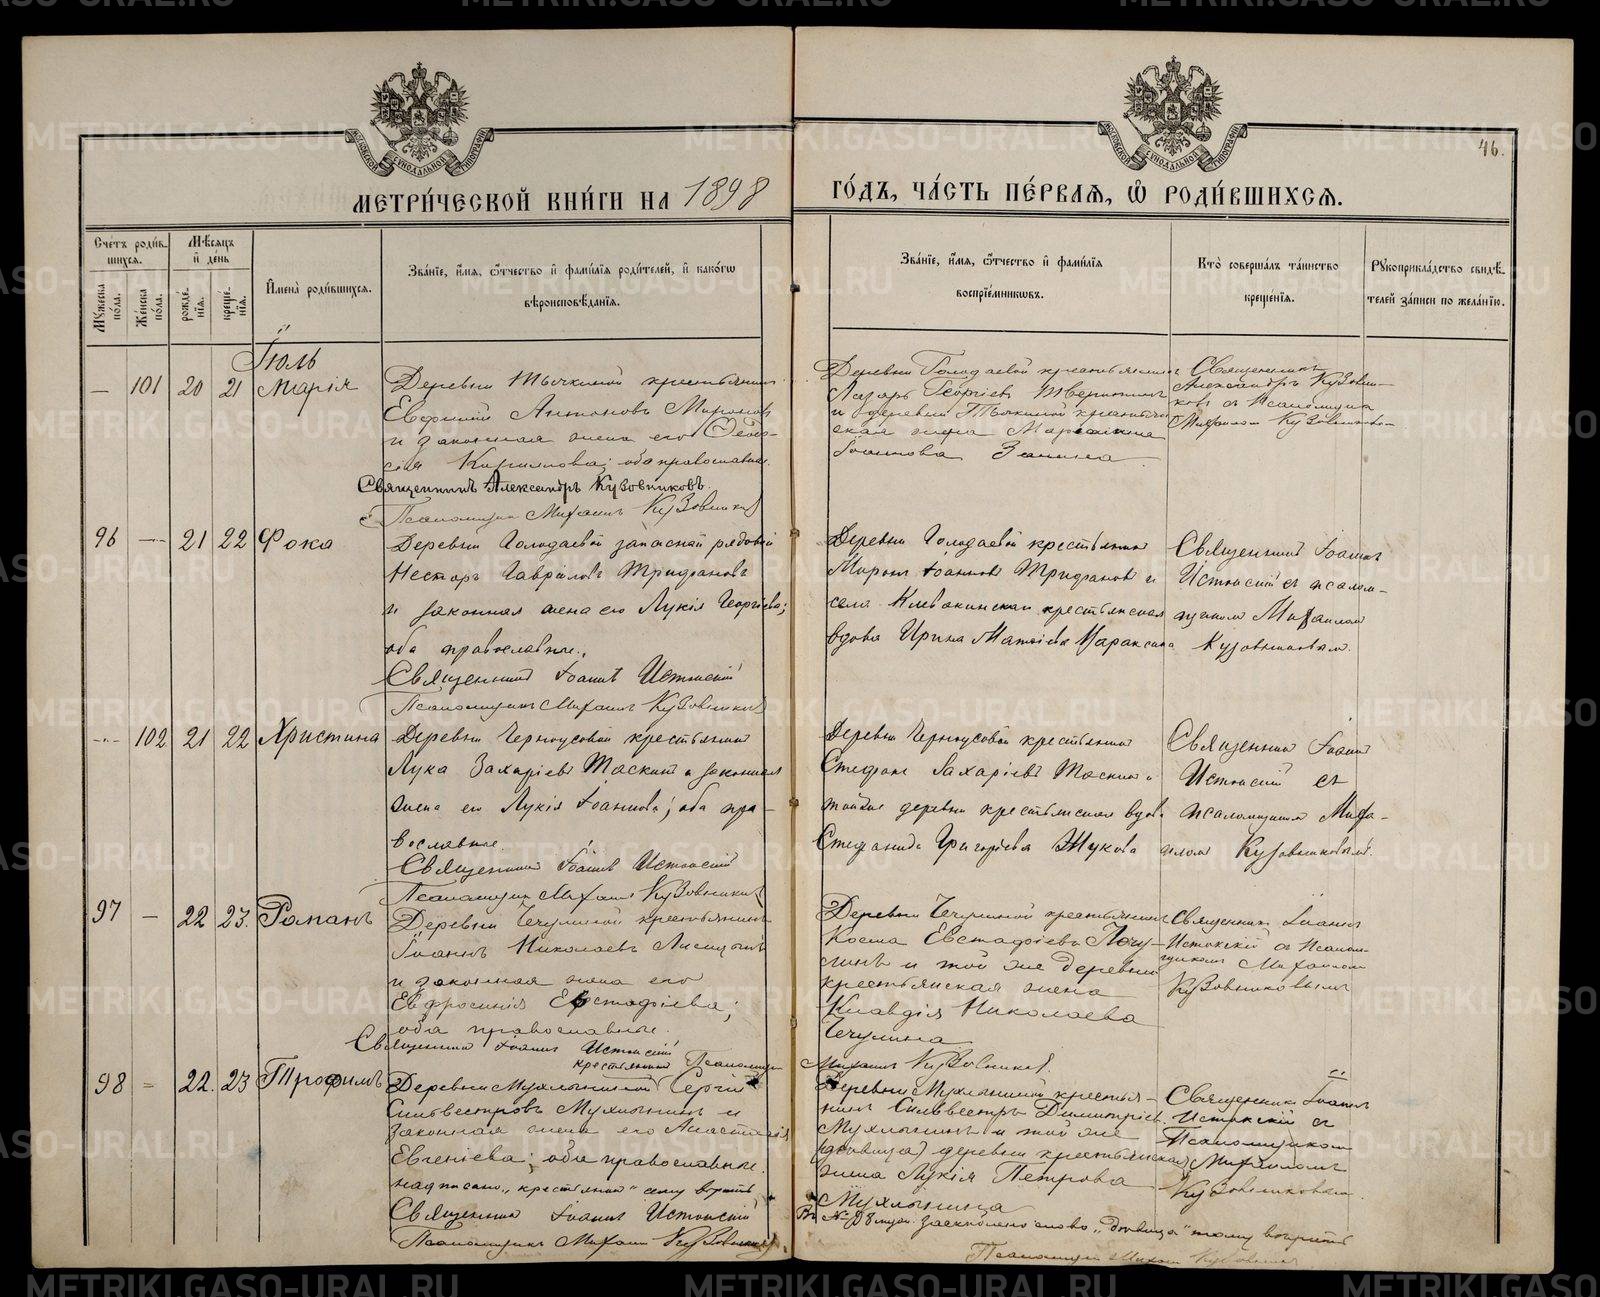 46.
МЕТРИ́ЧЕСКОЙ КНИ́ГИ НА 1898
ГО́ДЪ, ЧА́СТЬ ПЕ́РВАЯ, Ѽ РОДИ́ВШИХСЯ.
Сче́тъ роди́в-
шихся.
Му́жеска по́ла.
Же́нска по́ла.
Мѣ́сяцъ и де́нь
рожде́нїя.
креще́нїя.
И҆мена̀ роди́вшихся.
Зва́нїе, и҆́мя, ѻ҆́тчество и҆ фами́лїя роди́телей, и҆ како́гѡ
вѣроисповѣ́данїя.
Зва́нїе, и҆́мя, ѻ҆́тчество и҆ фами́лїя
воспрїе́мниковъ.
Кто̀ соверша́лъ та́инство
креще́нїя.
Рꙋкоприкла́дство свидѣ́-
телей за́писи по жела́нїю.
Іюль
— 101 20 21 Марія
Деревни Тычкиной крестьянинъ
Евфимій Антоновъ Мироновъ
и законная жена его Ѳеодо-
сія Кирилова; оба православные.
Священникъ Александръ Кузовниковъ.
Псаломщикъ Михаилъ Кузовниковъ
Деревни Голодаевой крестьянинъ
Лазарь Георгіевъ
и деревни Тычкиной крестьян-
ская жена
Іоаннова Зенина
Священникъ
Александръ Кузовни-
ковъ съ псаломщикомъ
Михаиломъ Кузовниковымъ
96 — 21 22 Фока
Деревни Голодаевой запасной рядовой
Несторъ Гавріиловъ Трифановъ
и законная жена его Лукія Георгіева;
оба православные.
Священникъ Іоаннъ Истокскій
Псаломщикъ Михаилъ Кузовниковъ
Деревни Голодаевой крестьянинъ
Миронъ Іоанновъ Трифановъ и
села Клевакинскаго крестьянская
вдова Ирина Матвіева
Священникъ Іоаннъ
Истокскій съ псалом-
щикомъ Михаиломъ
Кузовниковымъ.
— 102 21 22 Христина
Деревни Черноусовой крестьянинъ
Лука Захаріевъ Таскинъ и законная
жена его Лукія Іоаннова; оба пра-
вославные.
Священникъ Іоаннъ Истокскій
Псаломщикъ Михаилъ Кузовниковъ
Деревни Черноусовой крестьянинъ
Стефанъ Захаріевъ Таскинъ и
тойже деревни крестьянская вдова
Стефанида Григоріева Жукова
Священникъ Іоаннъ
Истокскій съ
псаломщикомъ Миха-
иломъ Кузовниковымъ.
97 — 22 23. Романъ
Деревни Чечулиной крестьянинъ
Іоаннъ Николаевъ Лисицынъ
и законная жена его
Евфросинія Евстафіева;
оба православные.
Священникъ Іоаннъ Истокскій Псаломщикъ
Михаилъ Кузовниковъ.
Деревни Чечулиной крестьянинъ
Косма Евстафіевъ Чечу-
линъ и той же деревни
крестьянская жена
Клавдія Николаева
Чечулина
Священникъ Іоаннъ
Истокскій съ Псалом-
щикомъ Михаиломъ
Кузовниковымъ
98 — 22. 23 Трофимъ
крестьянинъ
Деревни Мухлыниной Сергій
Сильвестровъ Мухлынинъ и
законная жена его Анастасія
Евгеніева; оба православные.
надписано „крестьянинъ“ сему вѣрить
Священникъ Іоаннъ Истокскій
Псаломщикъ Михаилъ Кузовниковъ.
Деревни Мухлыниной крестья-
нинъ Сильвестръ Димитріевъ
Мухлынинъ и той же
(дѣвица) деревни крестьянская
жена Лукія Петрова
Мухлынина
Въ № 98 муж. заскоблено слово „дѣвица“ тому вѣрить
Псаломщикъ Михаилъ Кузовниковъ
Священникъ Іоаннъ
Истокскій съ
Псаломщикомъ
Михаиломъ
Кузовниковымъ.
METRIKI.GASO-URAL.RU